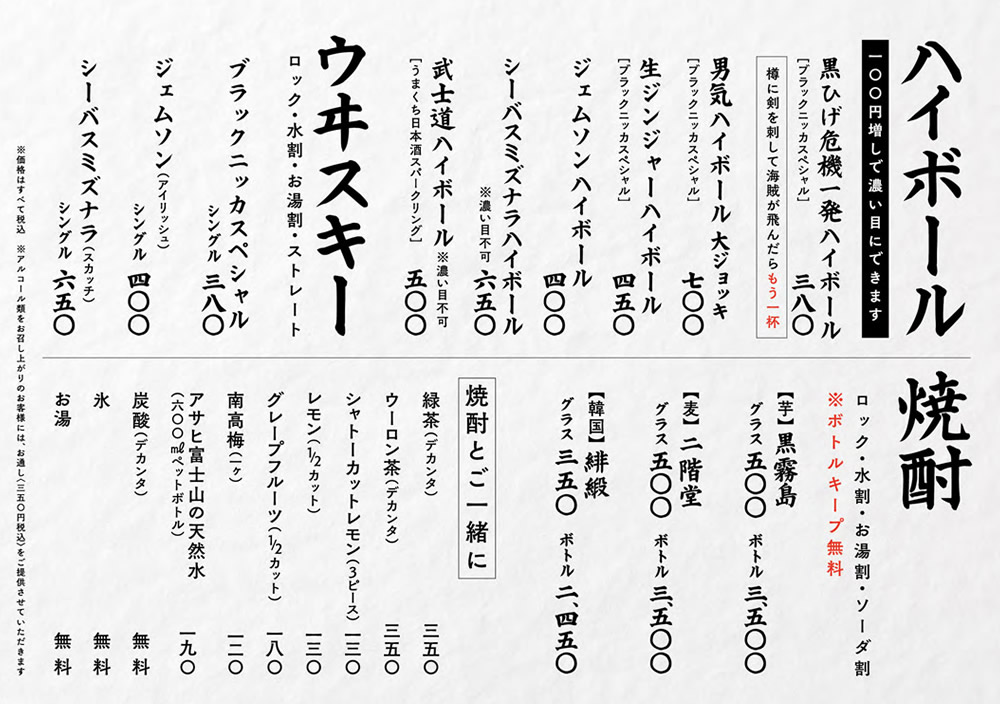 ハイボール
一〇〇円増しで濃い目にできます
黒ひげ危機一発ハイボール
[ブラックニッカスペシャル]
三八〇
樽に剣を刺して海賊が飛んだらもう一杯
男気ハイボール 大ジョッキ
[ブラックニッカスペシャル]
七〇〇
生ジンジャーハイボール
[ブラックニッカスペシャル]
四五〇
ジェムソンハイボール
四〇〇
シーバスミズナラハイボール
※濃い目不可
六五〇
武士道ハイボール ※濃い目不可
[うまくち日本酒スパークリング]
五〇〇
ウヰスキー
ロック・水割・お湯割・ストレート
ブラックニッカスペシャル
シングル 三八〇
ジェムソン(アイリッシュ)
シングル 四〇〇
シーバスミズナラ(スカッチ)
シングル 六五〇
焼酎
ロック・水割・お湯割・ソーダ割
※ボトルキープ無料
【芋】黒霧島
グラス 五〇〇 ボトル 三、五〇〇
【麦】二階堂
グラス 五〇〇 ボトル 三、五〇〇
【韓国】緋緞
グラス 三五〇 ボトル 二、四五〇
焼酎とご一緒に
緑茶(デカンタ) 三五〇
ウーロン茶(デカンタ) 三五〇
シャトーカットレモン(3ピース) 一三〇
レモン(1/2カット) 一三〇
グレープフルーツ(1/2カット) 一八〇
南高梅(一ヶ) 一二〇
アサヒ富士山の天然水
(六〇〇㎖ペットボトル) 一九〇
炭酸(デカンタ) 無料
氷 無料
お湯 無料
※価格はすべて税込 ※アルコール類をお召し上がりのお客様には、お通し(三五〇円税込)をご提供させていただきます